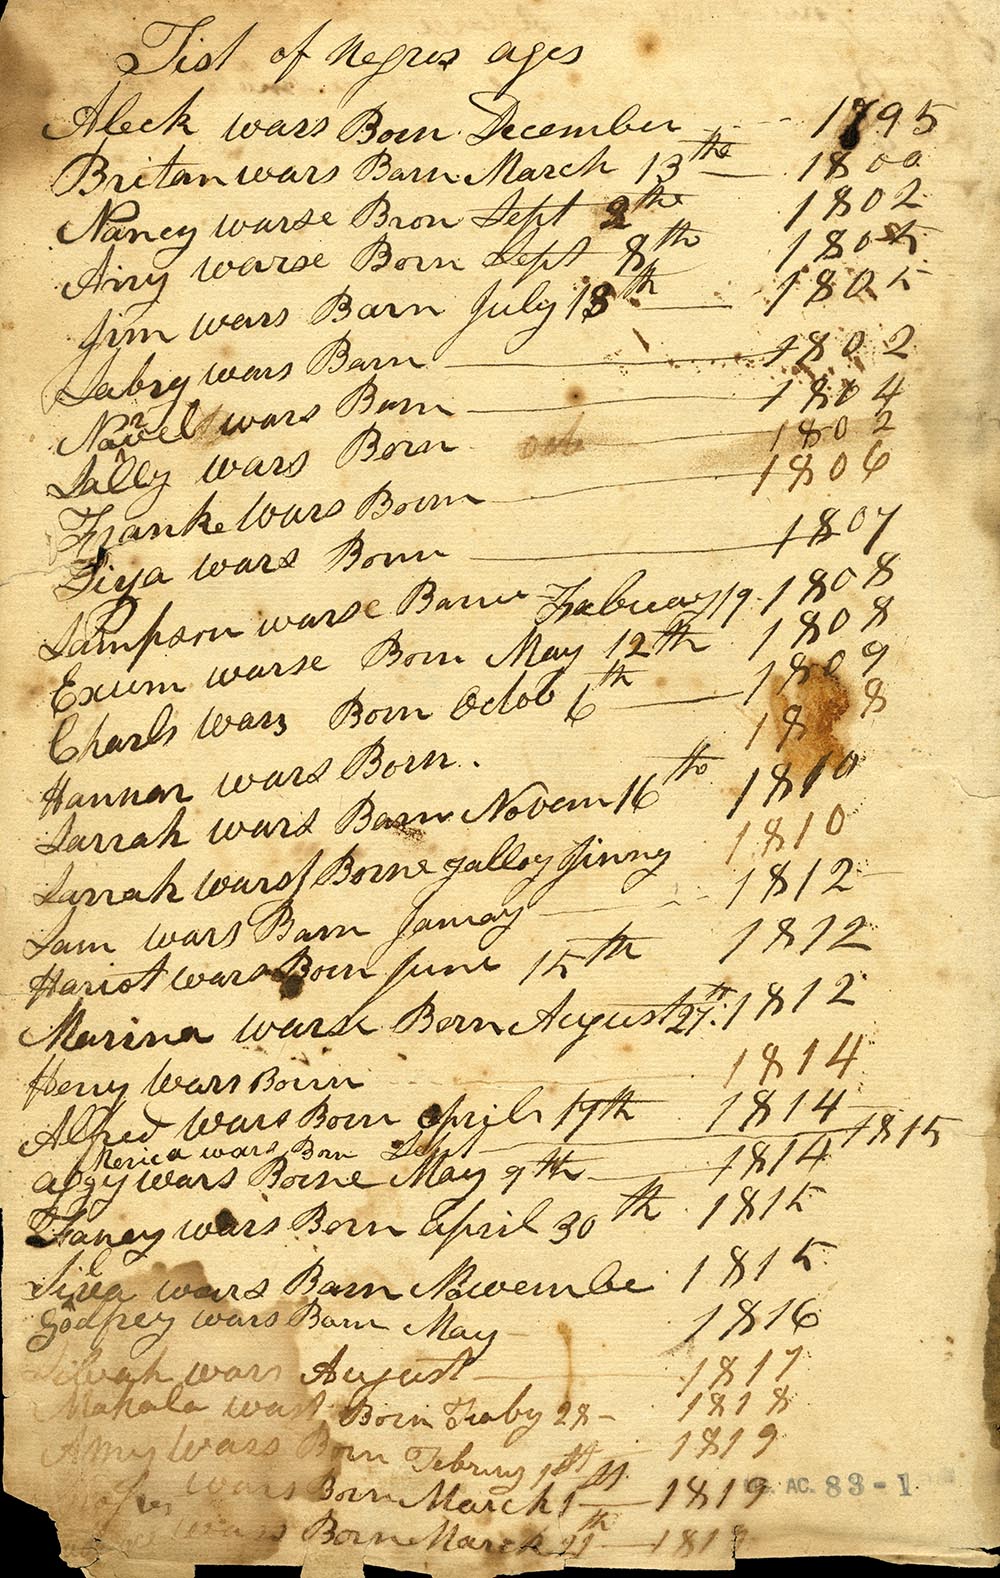 List of Negros ages
Aleck wars Born December 1795
Britan wars Barn March 13the 1800
Nancy warse Bron Sept 2the 1802
Airy warse Born Sept 8th 1805
Jim wars Barn July 18th 1805
Sabry wars Barn 1802
Navel wars Barn 1804
Sally wars Born 1802
Franke wars Born 1806
Siya wars Born 1807
Sampson warse Barne Febuary 19 1808
Exum warse Born May 12th 1808
Charls wars Born Octob 6th 1809
Hannar wars Born. 18 8
Sarrah wars Barn Novem 16th 1810
Sarrah wars Borne yalloy Jinny 1810
Sam wars Barn Januay 1812
Hariot wars Born June 15th 1812
Marina warse Born August 27th 1812
Heny wars Born 1814
Alfred wars Born april 17th 1814
Merica wars Born Sept 1815
aggy wars Borne May 9th 1814
Faney wars Born april 30th 1815
Silva wars Barn Novembe 1815
Godfrey wars Barn May 1816
wars August 1817
Mahala wars Born Feby 28 1818
Amy wars Born Febuy 1st 1819
wars Born March 1st 1819
wars Born March 21th 181
AC. 83-1